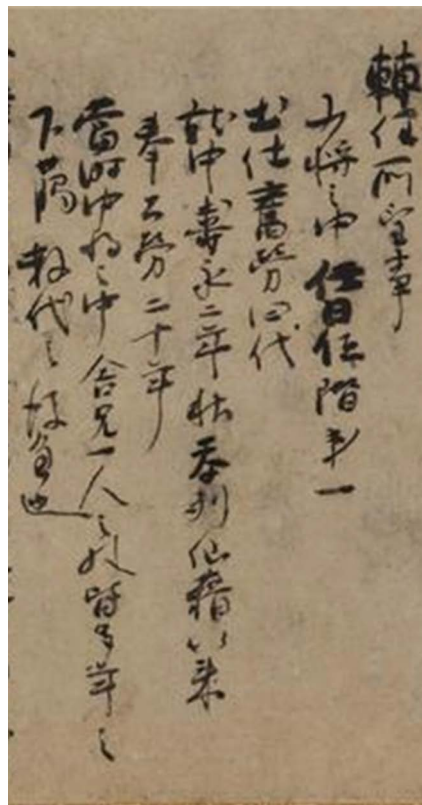 轉任所望事
少将之中任日位階第一
出仕舊勞四代
就中壽永二年秋忝列仙籍以来
奉公勞二十年
當時中将之中舎兄一人之外皆多年之
下﨟数代之後進也